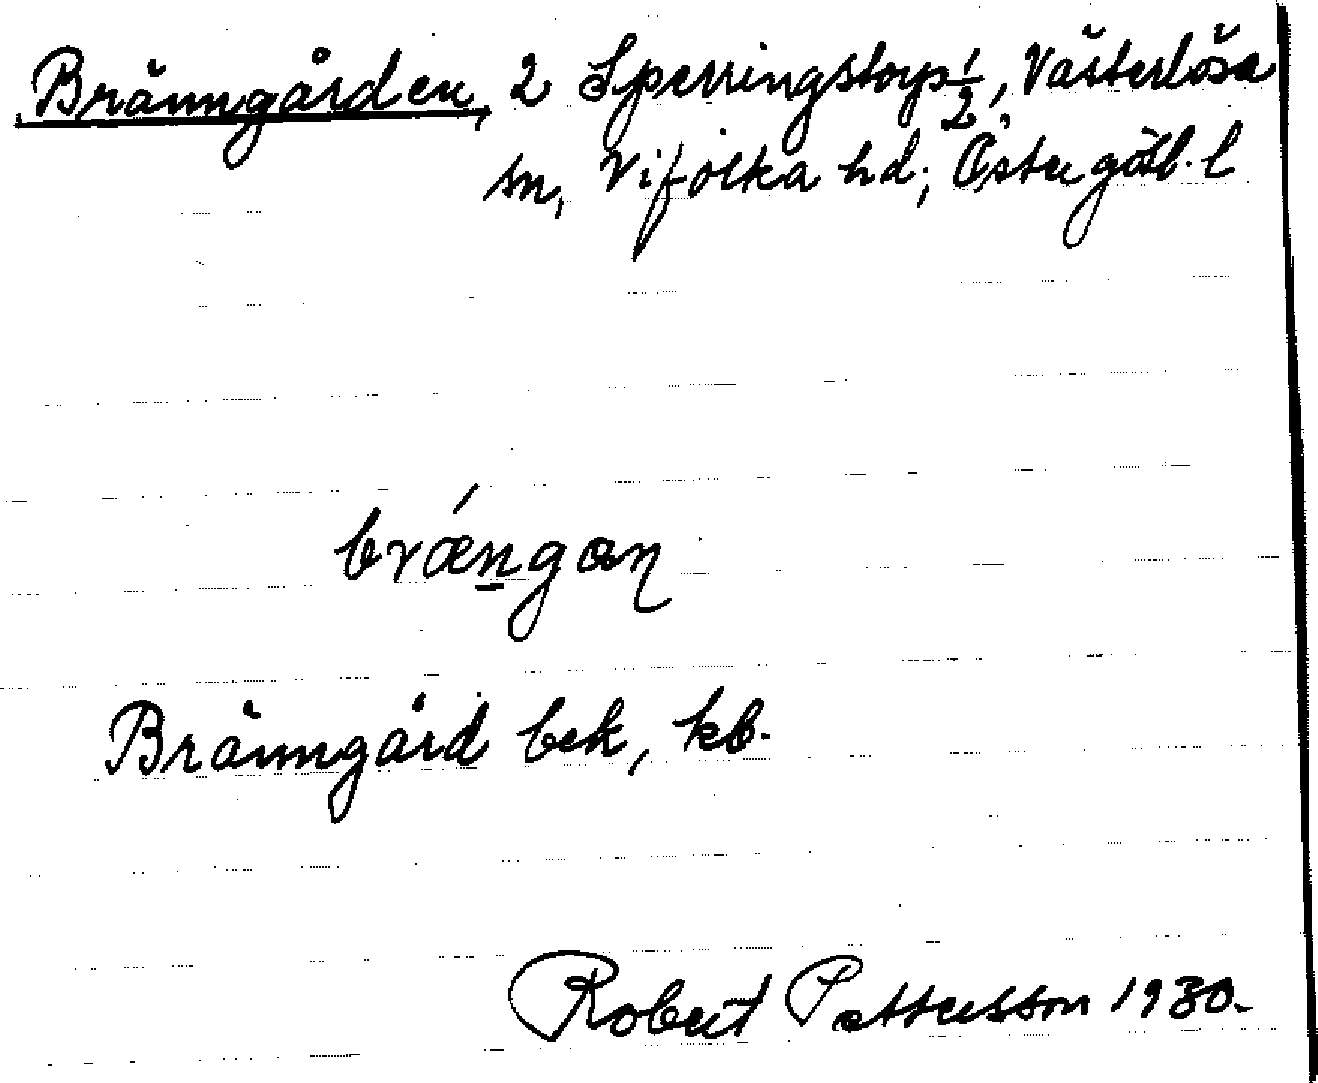 Bränngården, 2 Sperringstorp 1/2, Västerlösa
sn, Vifolka hd; Östergötl. l
bræ´ngaɳ
Bränngård bek, kb.
Robert Pettersson 1930.